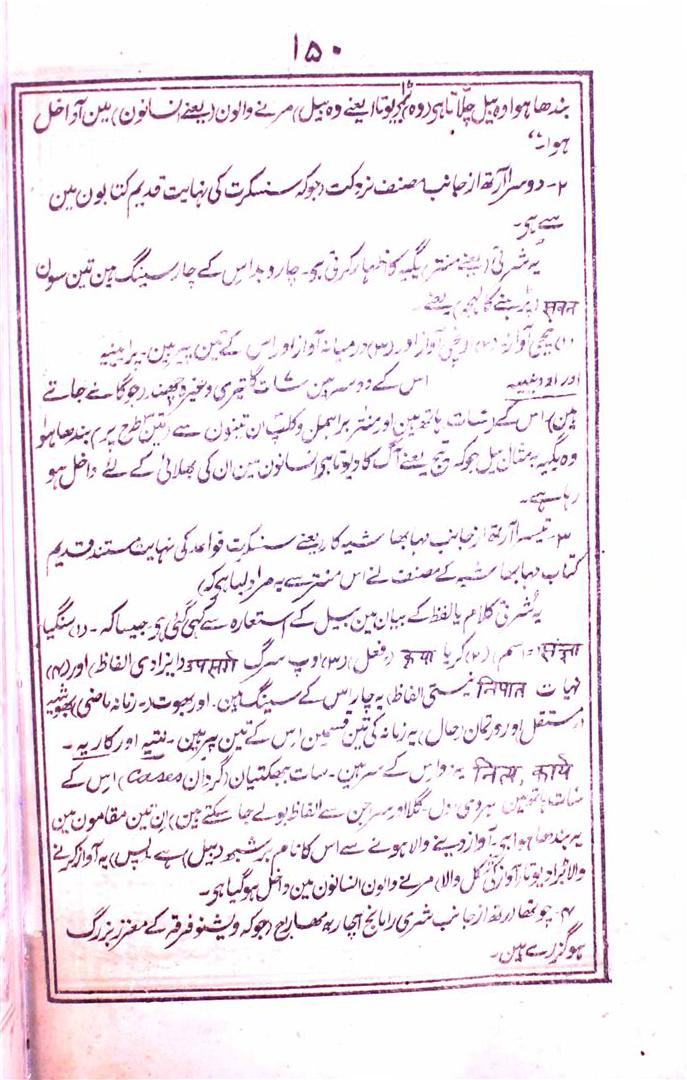 ۱۵۰
بندھا ہوا وہ بیل چلّاتا ہی (وہ) بڑا دیوتا (یعنے وہ بیل) مرنے والون (یعنے انسانون) مین آداخل
ہوا۔"
۲۔ دوسرا آرتھ از جانب مصنف نروکت (جوکہ سنسکرت کی نہایت قدیم کتابون مین
سے ہی۔
یہ شرتی (یعنے منتر) یگیہ کا اظہار کرتی ہی۔ چار وید اس کے چار سینگ ہین تین سون
सवन (پڑہنے کا لہجہ) یعنے۔
(۱) نیچی آواز (۲) اونچی آواز اور (۳) درمیانہ آواز اور اس کے تین پیر ہین۔
اور اس کے دو سر ہین سات گایتری وغیرہ چھند (جو گائے جاتے
ہین) اس کے (سات) ہاتھ ہین اور منتر براہمن و کلپ ان تینون سے (تین طرح پر) بندھا ہوا
وہ یگیہ بمثال بیل جوکہ تیج یعنے آگ کا دیوتا ہی انسانون مین ان کی بھلائی کے لئے داخل ہو
رہا ہے۔
۳۔ تیسرا آرتھ از جانب مہابھاشیہ کار یعنے سنسکرت قواعد کی نہایت مستند قدیم
کتاب مہابھاشیہ کے مصنف نے اس منتر سے یہ مراد لیا ہی کہ)
یہ شرتی کلام یا لفظ کے بیان مین بیل کے استعارہ سے کہی گئی ہی۔ جیسا کہ۔ (۱) سنگیا
संज्ञा = اسم) (۲) کریا क्रया (فعل) (۳) اوپ سرگ उपसर्ग (ایزادی الفاظ) اور (۴)
نپات निपात نیستی الفاظ) یہ چار اس کے سینگ ہین۔ اور بھوت (۔ زمانہ ماضی) بھوشیہ
(مستقبل) اور ورتمان (حال) یہ زمانہ کی تین قسمین اس کے تین پیر ہین۔ نتیہ اور کاریہ۔
नित्य, कार्य یہ دو اس کے سر ہین۔ سات بھکتیان (گردان Cases) اس کے
سات ہاتھ ہین ہردی (دل)۔ گلا اور سر جن سے الفاظ بولے جا سکتے ہین) ان تین مقامون مین
یہ بندھا ہوا ہی۔ آواز دینے والا ہونے سے اس کا نام برشبھ (بیل) ہے پس) یہ آواز کرنے
والا بڑا دیوتا (آواز کی شکل والا) مرنے والون انسانون مین داخل ہو گیا ہی۔
۴۔ چوتھا ارتھ از جانب شری رامانج اچاریہ مہاراج (جوکہ ویشنو فرقہ کے معزز بزرگ
ہو گزرے ہین۔